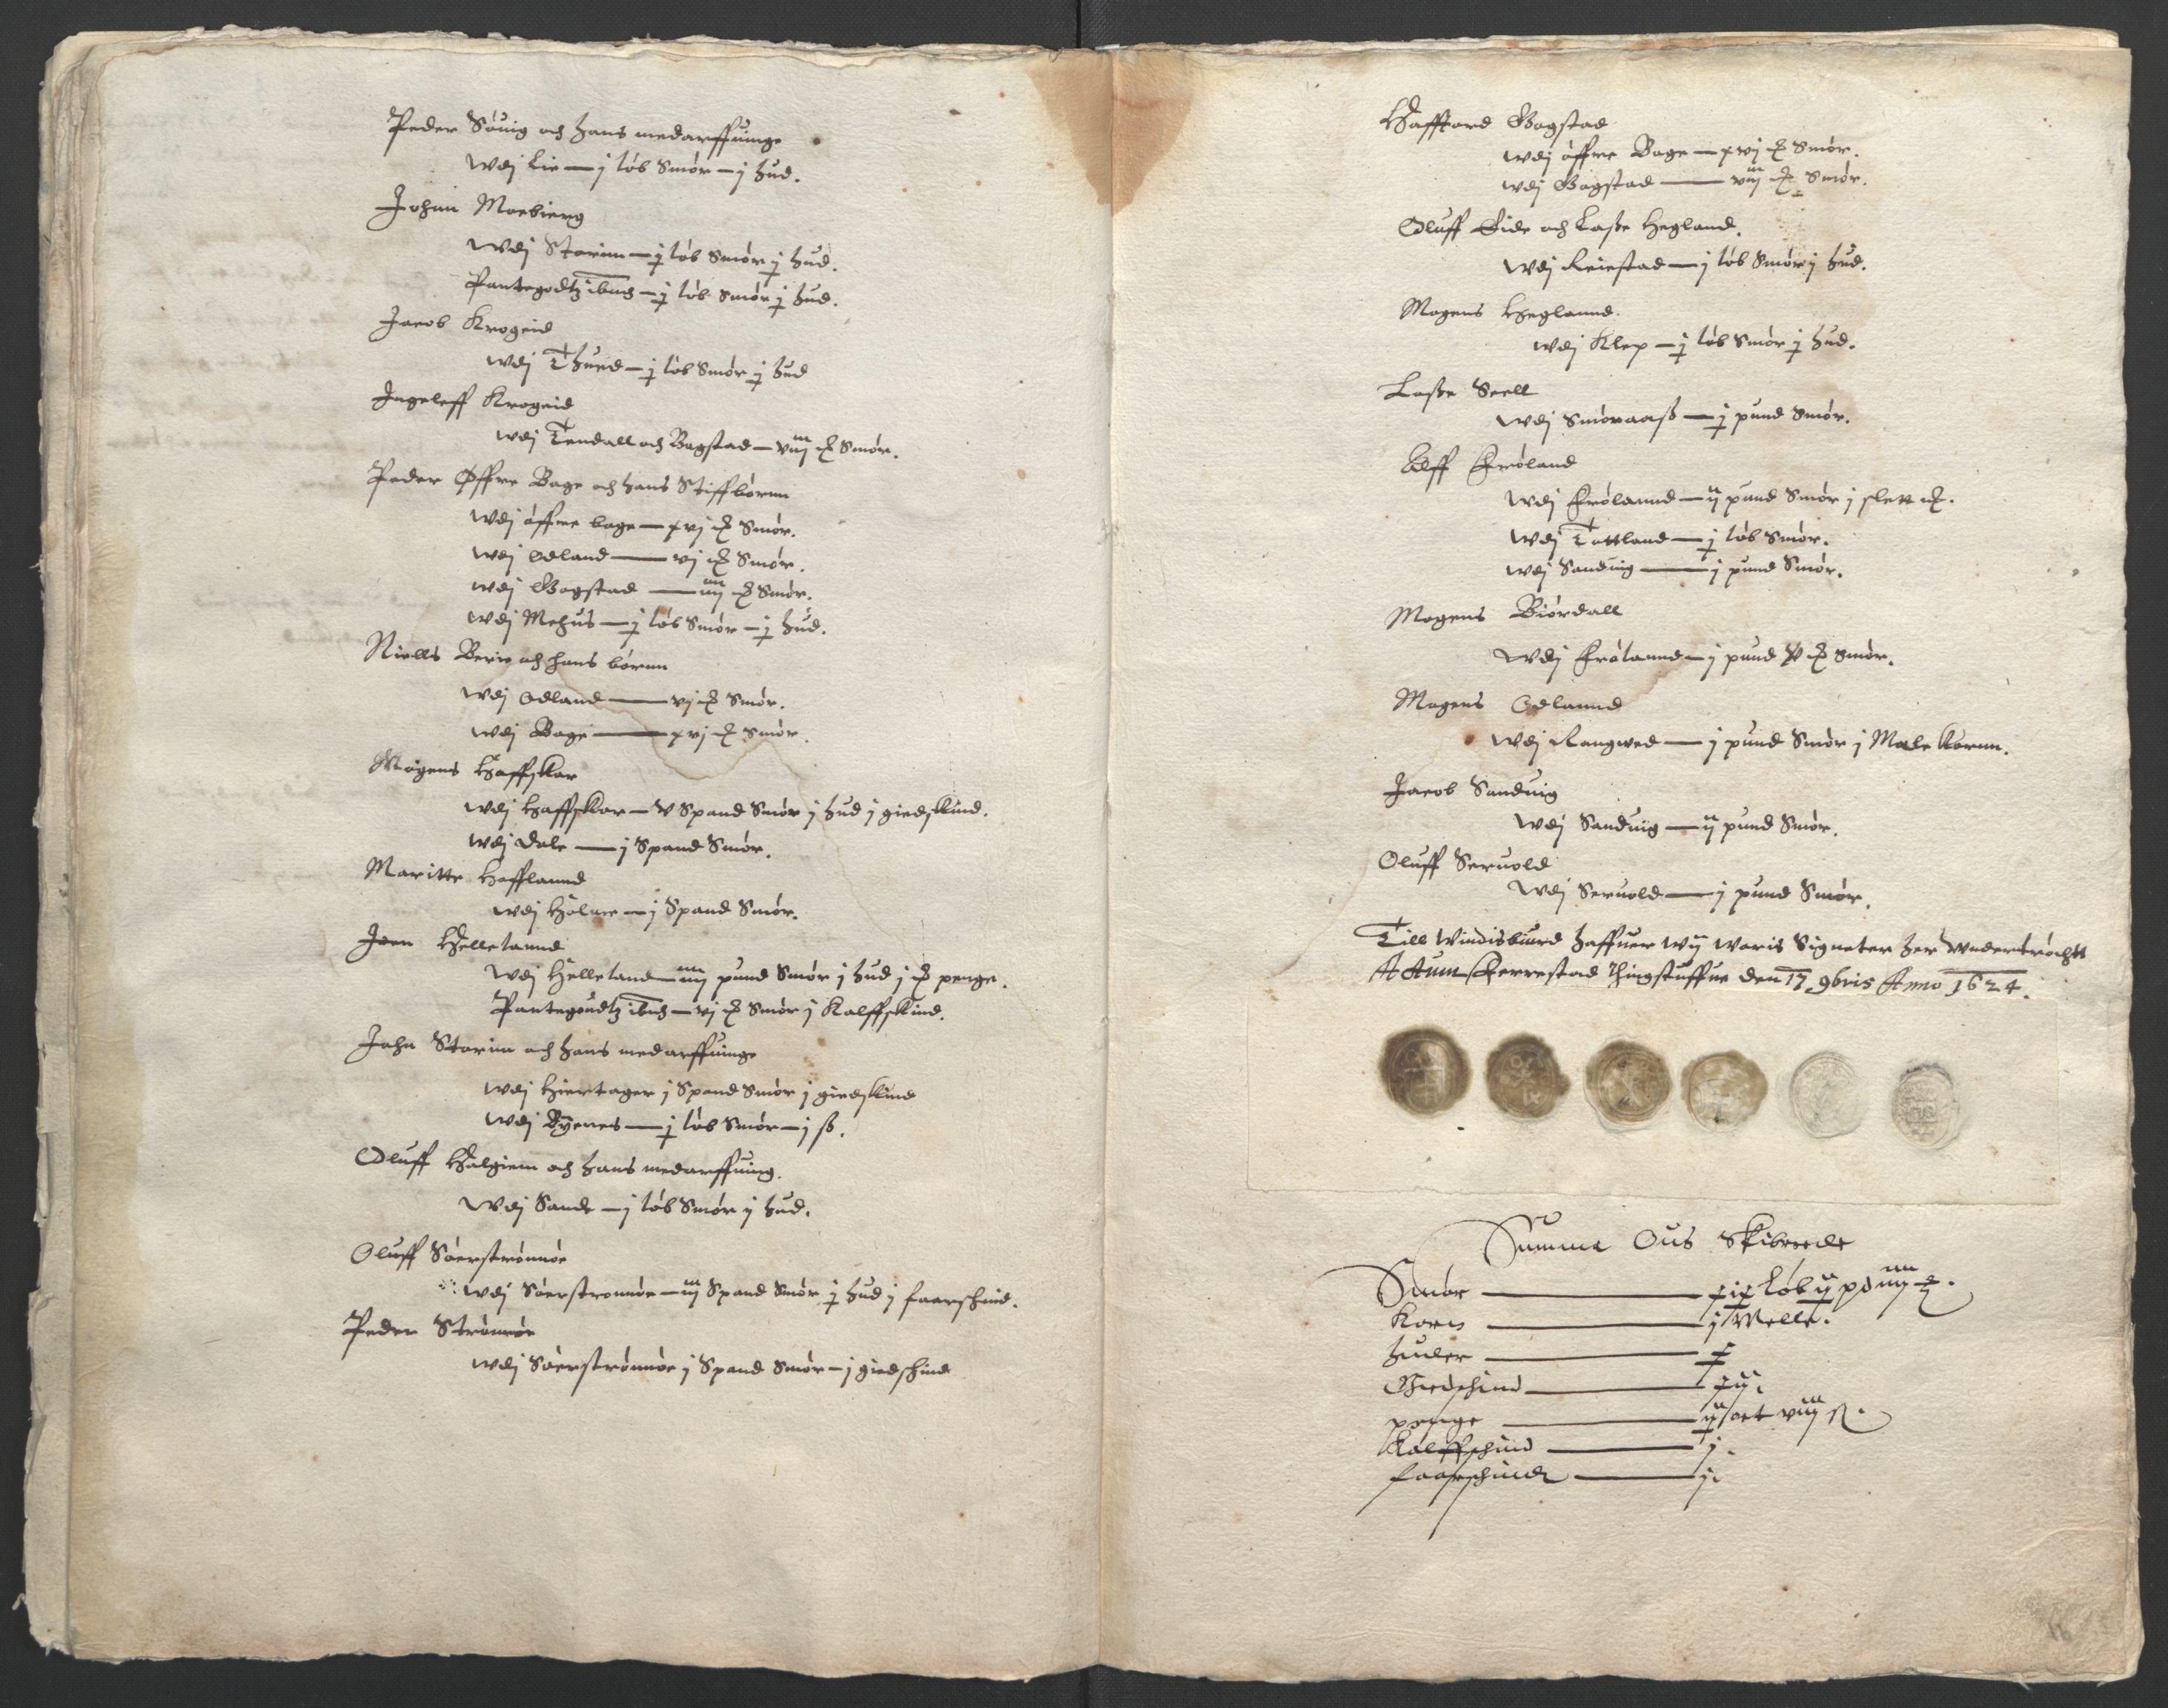 Peder Söuig och hans medarffuinge
Wdj Lie — j löb Smör — j hud.
Johan Moebierg
Wdj Storim — j löb Smör j hud.
Pantegodtz ibid — j löb Smör j hud.
Jacob Krogeid
wdj Thued — j löb Smör j hud
Ingeleff Krogeid
wdj Tendall och Bagstad — viij Smör.
Peder Øffre Bage och hans Stiffbörnn
Wdj öffre bage — xvj Smör.
wdj Odland — vj Smör.
wdj Bagstad — iiij Smör.
wdj Mehus — j löb Smör — j hud.
Niells Berie och hans börnn
wdj Odland — vj Smör.
wdj Bage — xvj Smör.
Mogens Haffskar
wdj Haffskar — v Spand Smör j hud j giedskind.
wdj Dale — j Spand Smör.
Maritte Hafflannd
wdj Holme — j Spand Smör.
Jren Hellelannd
wdj Helleland — iiij pund Smör j hud j penge.
Pantegoudtz ibid — vj Smör j Kalffskind.
John Storim och hans medarffuinge
wdj Hiertager j Spand Smör j giedskind
wdj Byernes — j löb Smör — j ß.
Oluff Halgiem och hans medarffuing.
Wdj Sande — j löb Smör j hud.
Oluff Söerströmnöe
wdj Söerströmnöe — iij Spand Smör j hud j faarschind.
Peder Strömnöe
wdj Söerströmnöe j Spand Smör — j giedschind
Haffuord Bagstad
wdj öffre Bage — xvj Smör.
wdj Bagstad — viij Smör.
Oluff Eide och Laße Hegland.
wdj Reiestad — j löb Smör j hud.
Mogens Heglannd.
wdj Klep — j löb Smör j hud.
Laße Seell
wdj Smöraaß — j pund Smör.
Alff Fröland
wdj Frölannd — ij pund Smör j slett.
wdj Tottland — j löb Smör.
wdj Sanduig — j pund Smör.
Mogens Biördall
wdj Frölannd — j pund Smör.
Mogens Odlannd
wdj Rongved — j pund Smör j Mele Kornn.
Jacob Sanduig
wdj Sanduig — ij pund Smör.
Oluff Seruold
Wdj Seruold — j pund Smör.
Till Windisbiurd haffuer wij woris Signeter her wndertröchtt
Actum Herrestad Thingstuffue den 17 9bris Anno 1624.
Summa Ous Skibrede
Smör — xix Löb ij pd iiij
Korn — j Melle.
huder — x
Giedschind — xij.
penge — ij ort viij ß.
Kalffschind — j.
faarschind — j.